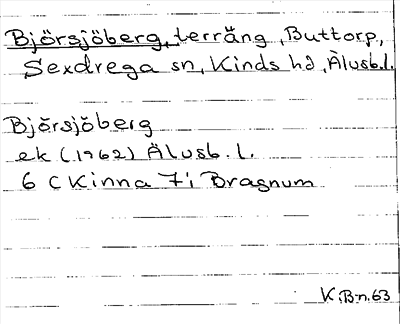 Björsjöberg, terräng, Buttorp,
Sexdrega sn, Kinds hd, Älvsb.l.
Björsjöberg
ek (1962) Älvsb.l.
6 C Kinna 7i Bragnum
K.B-n.63